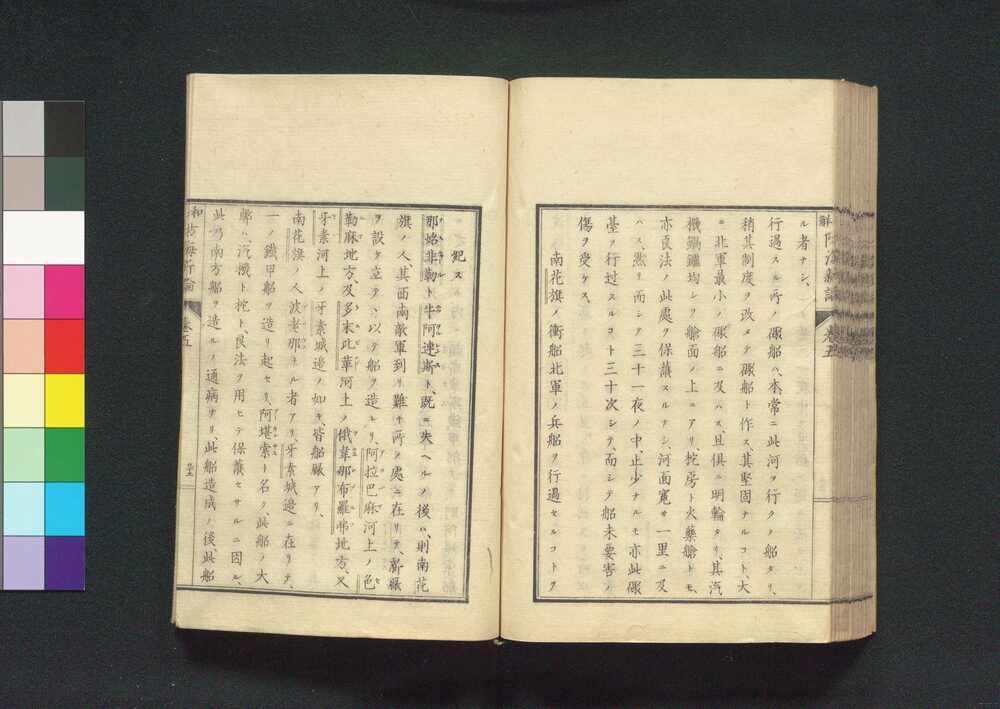 ル者ナシ、
行過スル所ノ礮船ハ、本常ニ此河ヲ行クノ船タリ、
稍其制度ヲ改メテ礮船ト作ス、其堅固ナルコト、大
ニ北軍最小ノ礮船ニ及ハス、且俱ニ明輪タリ、其汽
機鍋罐均シク艙面ノ上ニアリ柁房ト火藥艙トモ、
亦良法ノ此處ヲ保護スルナシ、河面寬サ一里ニ及
ハス、然リ而シテ三十一夜ノ中、止少ナルモ亦此礮
臺ヲ行过スルコト三十次ニシテ而シテ船未要害ノ
傷ヲ受ケス、
南花旗ノ衝船北軍ノ兵船ヲ行過セルコトヲ
卷五
紀ス
那哈非勒ト牛阿連斯ト、既ニ失ヘルノ後ハ、則南花
旗ノ人、其西南敵軍到リ難キ所ノ處ニ在リテ、新廠
ヲ設ケ立テ、以テ船ヲ造レリ、阿拉巴麻河上ノ色
勒麻地方、及多末此華河上ノ俄韋那布羅弗地方、又
牙素河上ノ牙素城邉ノ如キ、皆船廠アリ、
南花旗ノ人波老那トル者アリ、牙素城邉ニ在リテ、
一ノ鐵甲船ヲ造リ起セリ、阿堪索ト名ク、此船ノ大
弊ハ、汽機ト柁ト、良法ヲ用ヒテ保護セサルニ因ル、
此乃南方船ヲ造ルノ通病ナリ、此船造成ノ後、此船
卷五